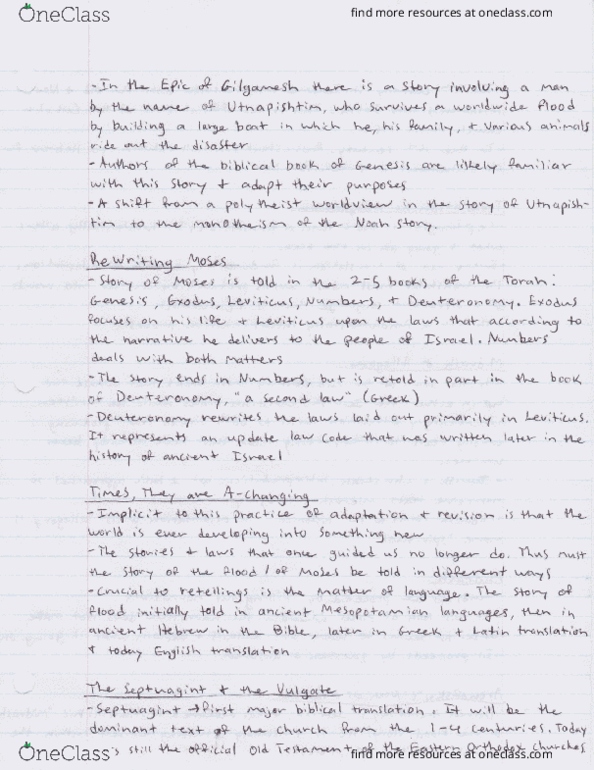 OneClass
find more resources at oneclass.com
- In the Epic of Gilgamesh there is a story involving a man
by the name of Utnapishtim, who survives a worldwide flood
by building a large boat in which he, his family, + various animals
ride out the disaster
- Authors of the biblical book of Genesis are likely familiar
with this story + adapt their purposes
- A shift from a polytheist worldview in the story of Utnapish-
tim to the monotheism of the Noah story.
ReWriting Moses
- Story of Moses is told in the 2-5 books of the Torah:
Genesis, Exodus, Leviticus, Numbers, + Deuteronomy. Exodus
focuses on his life + Leviticus upon the laws that according to
the narrative he delivers to the people of Israel. Numbers
deals with both matters
- The story ends in Numbers, but is retold in part in the book
of Deuteronomy, "a second law" (Greek)
- Deuteronomy rewrites the laws laid out primarily in Leviticus.
It represents an update law code that was written later in the
history of ancient Israel
Times, They are A-changing
- Implicit to this practice of adaptation + revision is that the
world is ever developing into something new
- The stories + laws that once guided us no longer do. Thus must
the story of the flood / of Moses be told in different ways
- Crucial to retellings is the matter of language. The story of
flood initially told in ancient Mesopotamian languages, then in
ancient Hebrew in the Bible, later in Greek + Latin translation
+ today English translation
The Septuagint + the Vulgate
- Septuagint → first major biblical translation. It will be the
dominant text of the church from the 1-4 centuries. Today
's still the official Old Testament of the Eastern Orthodox churches
OneClass
find more resources at oneclass.com